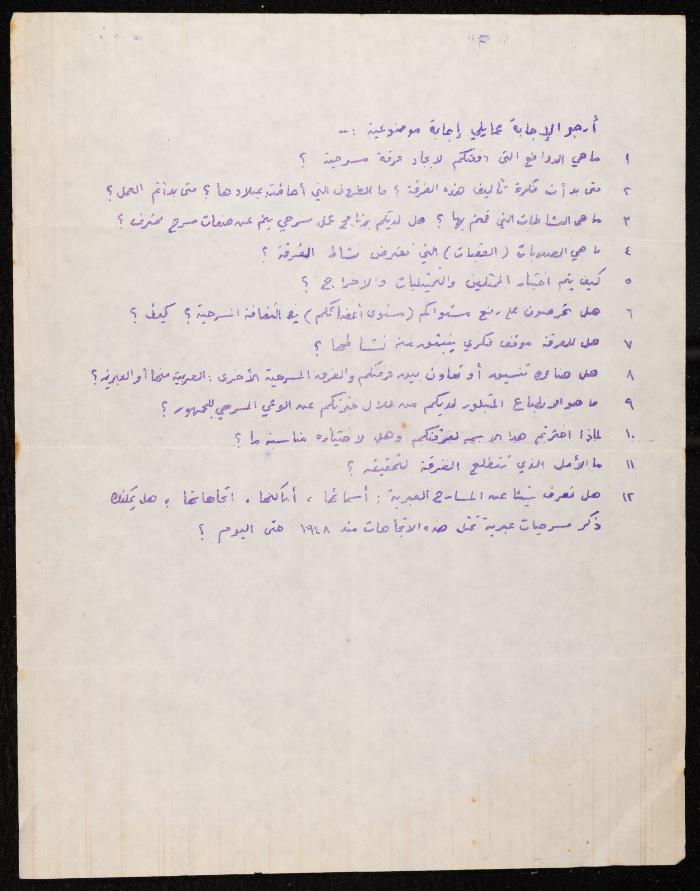 أرجو الإجابة عمايلي إجابة موضوعية :-
١ ماهي الدوافع التي دفعتكم لايجاد فرقة مسرحية ؟
٢ متى بدأت فكرة تأليف هذه الفرقة ؟ ما الظروف التي أحاطت بميلادها ؟ متى بدأتم العمل ؟
٣ ما هي النشاطات التي قمتم بها ؟ هل لديكم برنامج عمل مسرحي ينم عن صفات مسرح محترف ؟
٤ ما هي الصعوبات (العقبات) التي تعترض نشاط الفرقة ؟
٥ كيف يتم اختيار الممثلين والتمثيليات والاخراج ؟
٦ هل تحرصون على رفع مستواكم (مستوى أعضائكم) في الثقافة المسرحية ؟ كيف ؟
٧ هل للفرقة موقف فكري ينبثق عنه نشاطها ؟
٨ هل هناك تنسيق أو تعاون بين فرقتكم والفرق المسرحية الأخرى : العربية منها أو العبرية ؟
٩ ما هو الانطباع المتبلور لديكم من خلال خبرتكم عن الوعي المسرحي للجمهور ؟
١٠ لماذا اخترتم هذا الاسم لفرقتكم وهل لاختياره مناسبة ما ؟
١١ ما الأمل الذي تتطلع الفرقة لتحقيقه ؟
١٢ هل تعرف شيئا عن المسارح العبرية : أسمائها ، أماكنها ، اتجاهاتها ، هل يمكنك
ذكر مسرحيات عبرية تمثل هذه الاتجاهات منذ ١٩٤٨ حتى اليوم ؟